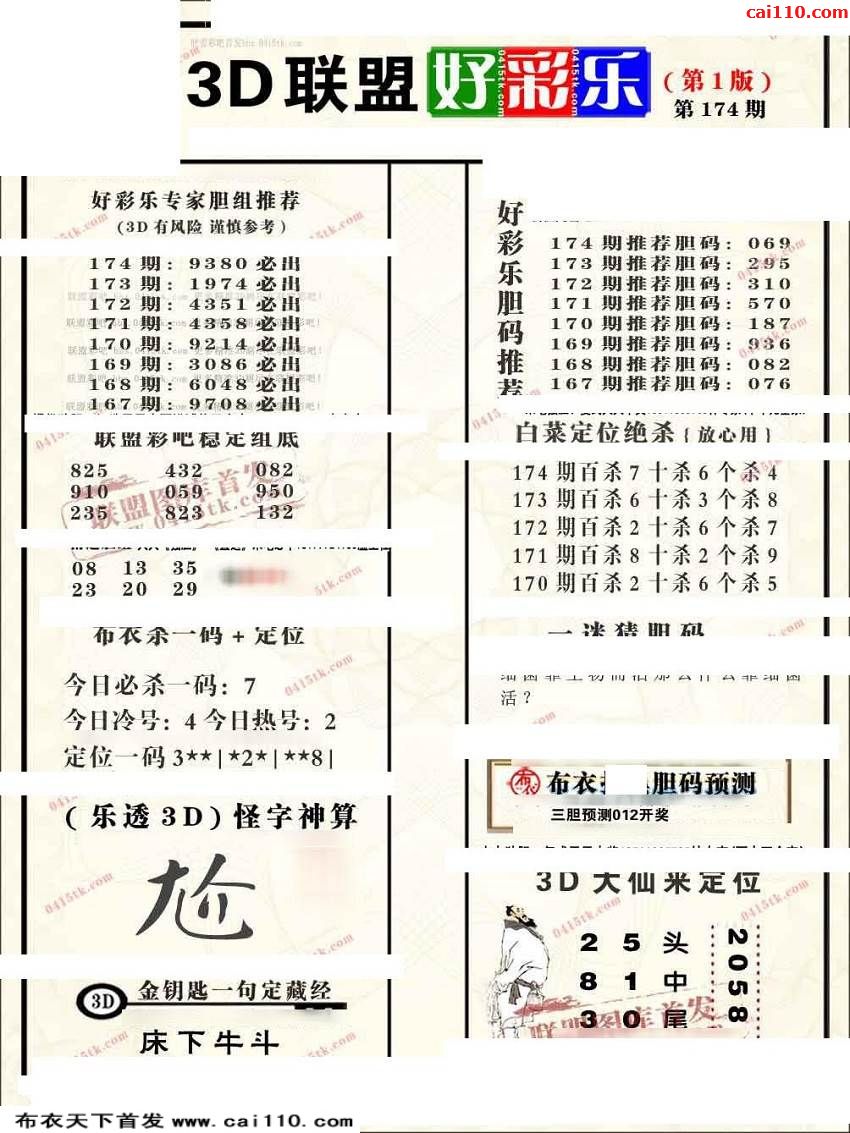 cai110.com
3D联盟好彩乐
(第1版)
第174期
好彩乐专家胆组推荐
(3D有风险 谨慎参考)
174期: 9380必出
173期: 1974必出
172期: 4351必出
171期: 4358必出
170期: 9214必出
169期: 3086必出
168期: 6048必出
167期: 9708必出
联盟彩吧稳定组底
825 432 082
910 059 950
235 823 132
08 13 35
23 20 29
布衣杀一码+定位
今日必杀一码: 7
今日冷号: 4 今日热号: 2
定位一码 3**|*2*|**8|
(乐透3D)怪字神算
尬
3D 金钥匙一句定藏经
床下牛斗
好彩乐胆码推荐
174期推荐胆码: 069
173期推荐胆码: 295
172期推荐胆码: 310
171期推荐胆码: 570
170期推荐胆码: 187
169期推荐胆码: 936
168期推荐胆码: 082
167期推荐胆码: 076
白菜定位绝杀{放心用}
174期百杀7十杀6个杀4
173期百杀6十杀3个杀8
172期百杀2十杀6个杀7
171期百杀8十杀2个杀9
170期百杀2十杀6个杀5
一迷猜胆码
活?
布衣 胆码预测
三胆预测012开奖
3D大仙来定位
2 5 头
8 1 中
3 0 尾
2058
联盟图库首发
0415tk.com
布衣天下首发 www.cai110.com